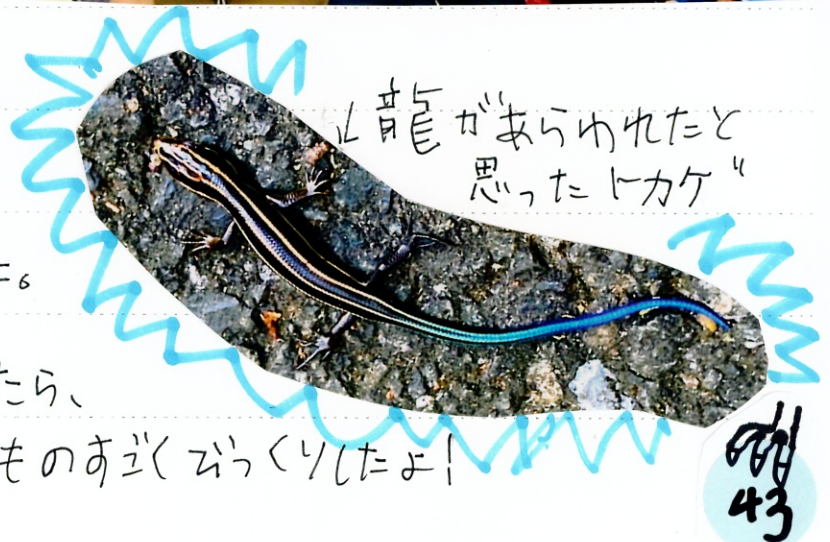 ↓龍があらわれたと
思ったトカゲ
た。
たら、
ものすごくびっくりしたよ!
43